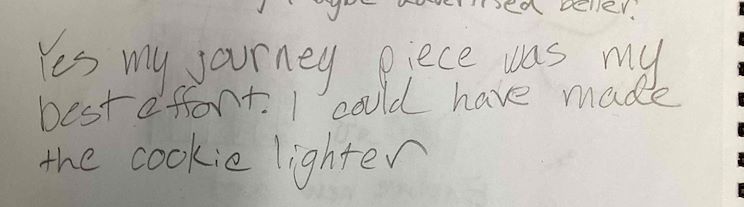 maybe advertised better.
Yes my journey piece was my
best effort. I could have made
the cookie lighter